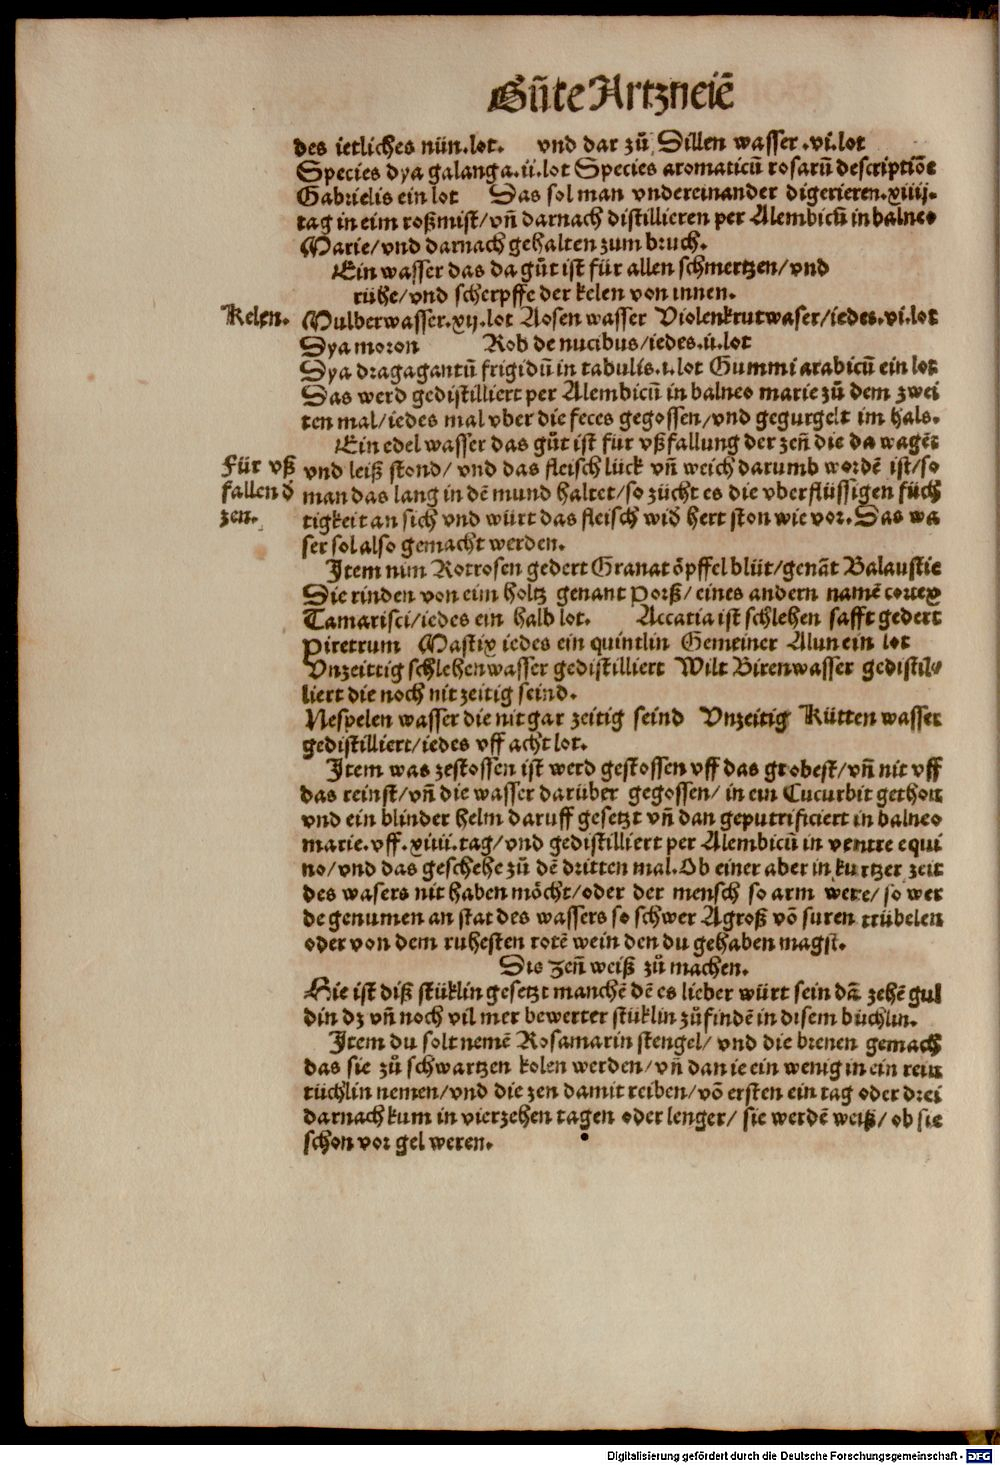 Gůte Artzneiē
des ietliches nün.lot. vnd dar zů Dillen wasser.vi.lot
Species dya galanga.ii.lot Species aromaticū rosarū descriptiōe
Gabrielis ein lot Das sol man vndereinander digerieren.xiiij.
tag in eim roßmist/vñ darnach distillieren per Alembicū in balneo
Marie/vnd darnach gehalten zum bruch.
Ein wasser das da gůt ist für allen schmertzen/vnd
rühe/vnd scherpffe der kelen von innen.
Kelen. Mulberwasser.xij.lot Rosen wasser Violenkrutwaser/iedes.vi.lot
Dya moron Rob de nucibus/iedes.ii.lot
Dya dragagantū frigidū in tabulis.i.lot Gummi arabicū ein lot
Das werd gedistilliert per Alembicū in balneo marie zů dem zwei
ten mal/iedes mal vber die feces gegossen/vnd gegurgelt im hals.
Ein edel wasser das gůt ist für vßfallung der zeñ die da wagēt
Für vß vnd leiß stond/vnd das fleisch lück vñ weich darumb wordē ist/so
fallen d̄ man das lang in dē mund haltet/so zücht es die vberflüssigen füch
zen. tigkeit an sich vnd würt das fleisch wid̄ hert ston wie vor. Das wa
ser sol also gemacht werden.
Item nim Rotrosen gedert Granat öpffel blüt/genāt Balaustie
Die rinden von eim holtz genant Porß/eines andern namē cortex
Tamarisci/iedes ein halb lot. Accatia ist schlehen safft gedert
Piretrum Mastix iedes ein quintlin Gemeiner Alun ein lot
Vnzeittig schlehenwasser gedistilliert Wilt Birenwasser gedistil⸗
liert die noch nit zeitig seind.
Nespelen wasser die nit gar zeitig seind Vnzeitig Kütten wasser
gedistilliert/iedes vff acht lot.
Item was zestossen ist werd gestossen vff das grobest/vñ nit vff
das reinst/vñ die wasser darüber gegossen/in ein Cucurbit gethon
vnd ein blinder helm daruff gesetzt vñ dan geputrificiert in balneo
marie.vff.xiiii.tag/vnd gedistilliert per Alembicū in ventre equi
no/vnd das geschehe zů dē dritten mal. Ob einer aber in kurtzer zeit
des wasers nit haben möcht/oder der mensch so arm were/so wer
de genumen an stat des wassers so schwer Agroß vō suren trübelen
oder von dem ruhesten rotē wein den du gehaben magst.
Die Zeñ weiß zů machen.
Hie ist diß stüklin gesetzt manchē dē es lieber würt sein dā zehē gul
din dz vñ noch vil mer bewerter stüklin zů findē in disem büchlin.
Item du solt nemē Rosamarin stengel/vnd die brenen gemach
das sie zů schwartzen kolen werden/vñ dan ie ein wenig in ein rein
tüchlin nemen/vnd die zen damit reiben/vō ersten ein tag oder drei
darnach kum in vierzehen tagen oder lenger/sie werdē weiß/ob sie
schon vor gel weren.
Digitalisierung gefördert durch die Deutsche Forschungsgemeinschaft - DFG